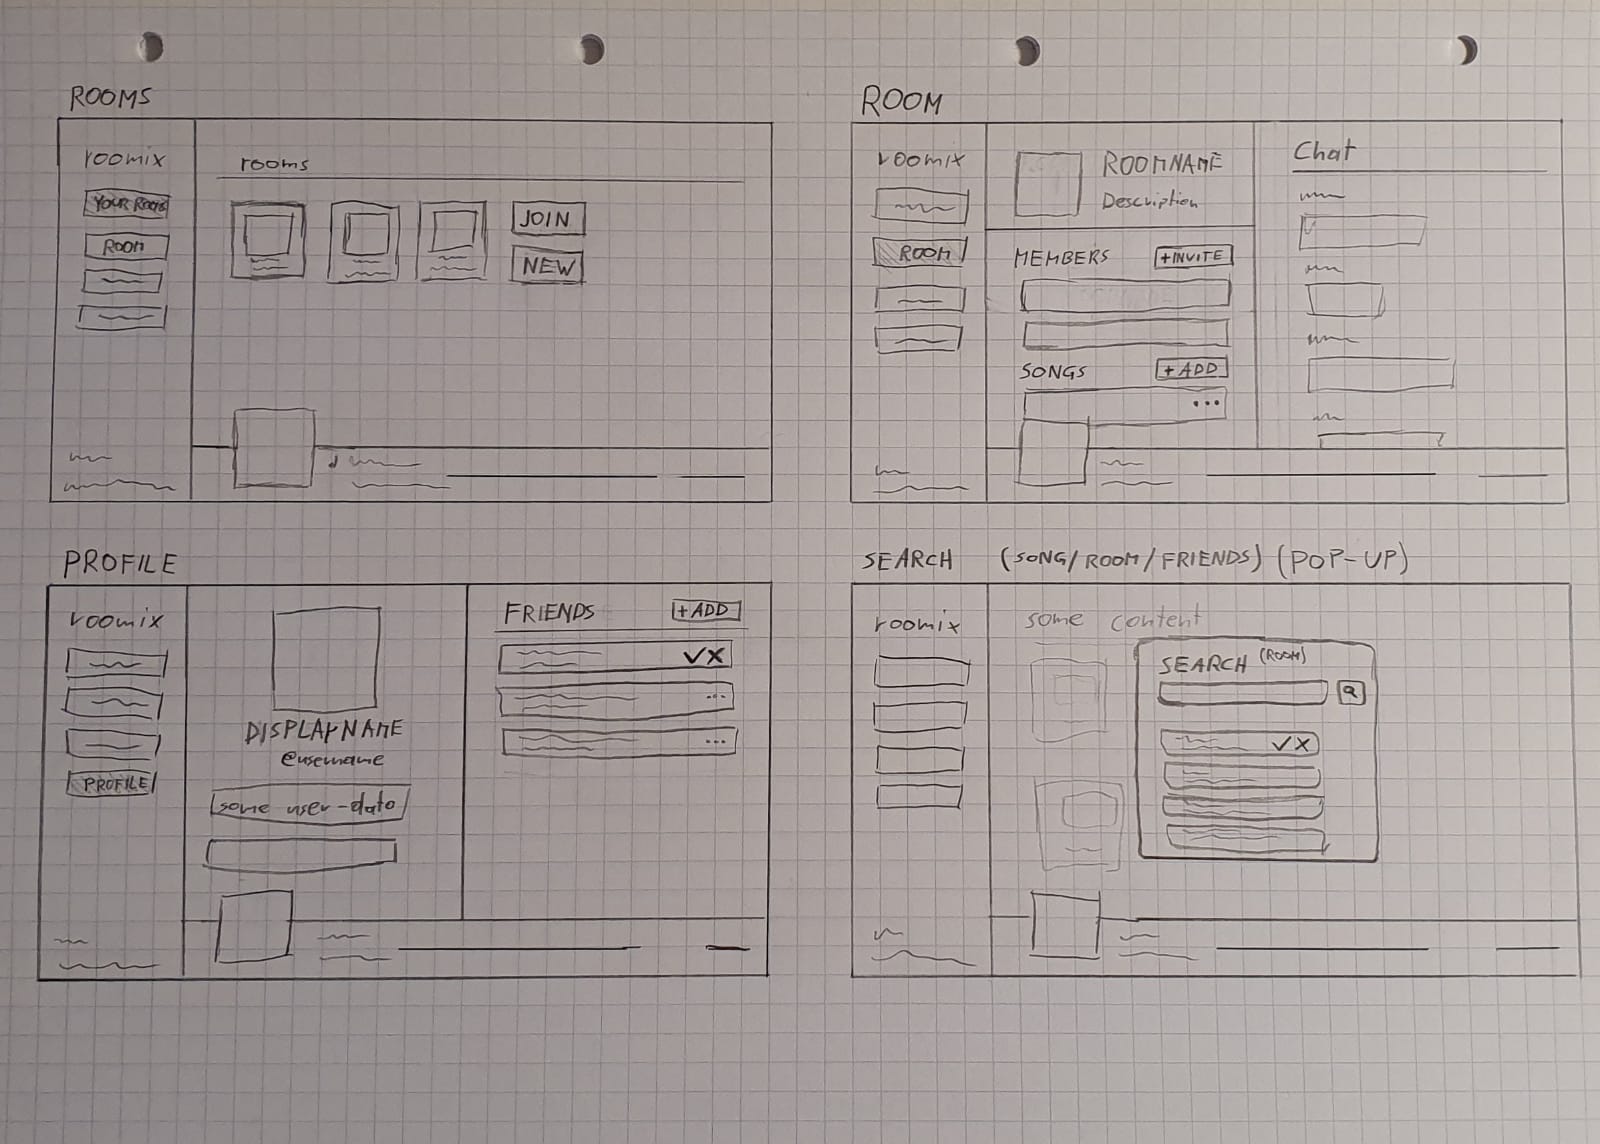 ROOMS
roomix
YOUR ROOMS
ROOM
rooms
JOIN
NEW
ROOM
roomix
ROOM
ROOMNAME
Description
MEMBERS
+INVITE
SONGS
+ADD
...
Chat
PROFILE
roomix
PROFILE
DISPLAYNAME
@username
some user-data
FRIENDS
+ADD
✓X
...
...
SEARCH (SONG/ROOM/FRIENDS) (POP-UP)
roomix
some content
SEARCH (ROOM)
✓X